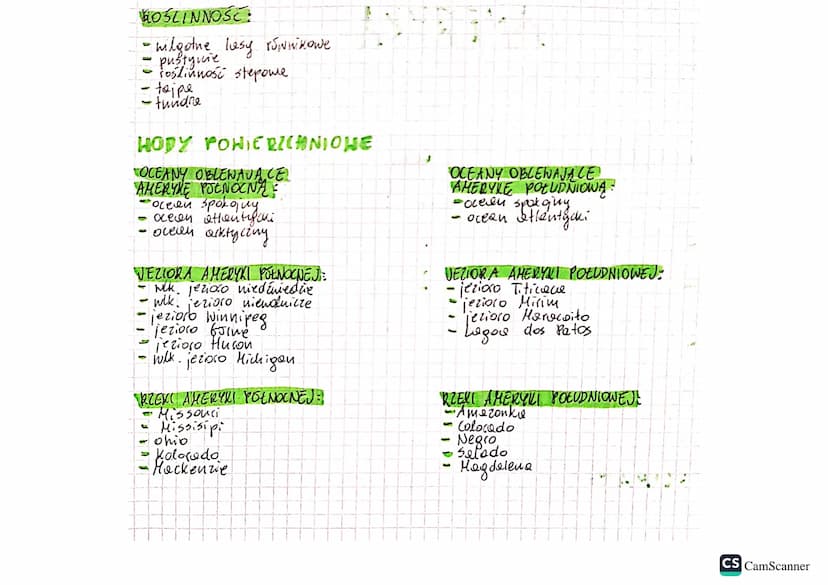 ROŚLINNOŚĆ:
- wilgotne lasy równikowe
- pustynie
- roślinność stepowa
- tajga
- tundra
WODY POWIERZCHNIOWE
OCEANY OBLEWAJĄCE
AMERYKĘ PÓŁNOCNĄ:
- ocean spokojny
- ocean atlantycki
- ocean arktyczny
OCEANY OBLEWAJĄCE
AMERYKĘ POŁUDNIOWĄ:
- ocean spokojny
- ocean atlantycki
JEZIORA AMERYKI PÓŁNOCNEJ:
- wlk. jezioro niedźwiedzie
- wlk. jezioro niewolnicze
- jezioro Winnipeg
- jezioro Górne
- jezioro Huron
- wlk. jezioro Michigan
JEZIORA AMERYKI POŁUDNIOWEJ:
- jezioro Titicaca
- jezioro Mirim
- jezioro Maracaibo
- Lagoa dos Patos
RZEKI AMERYKI PÓŁNOCNEJ:
- Missouri
- Missisipi
- Ohio
- Kolorado
- Mackenzie
RZEKI AMERYKI POŁUDNIOWEJ:
- Amazonka
- Colorado
- Negro
- Salado
- Magdalena
CS CamScanner